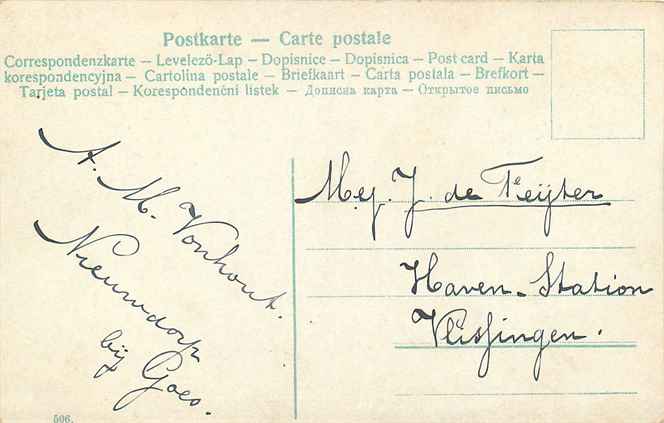 Postkarte — Carte postale
Correspondenzkarte — Levelező-Lap — Dopisnice — Dopisnica — Post card — Karta
korespondencyjna — Cartolina postale — Briefkaart — Carta postala — Brefkort —
Tarjeta postal — Korespondenční listek — Дописна карта — Открытое письмо
A. M. Vonhout.
Nieuwdorp
bij Goes.
Mej. J. de Feijter
Haven-Station
Vlissingen.
506.